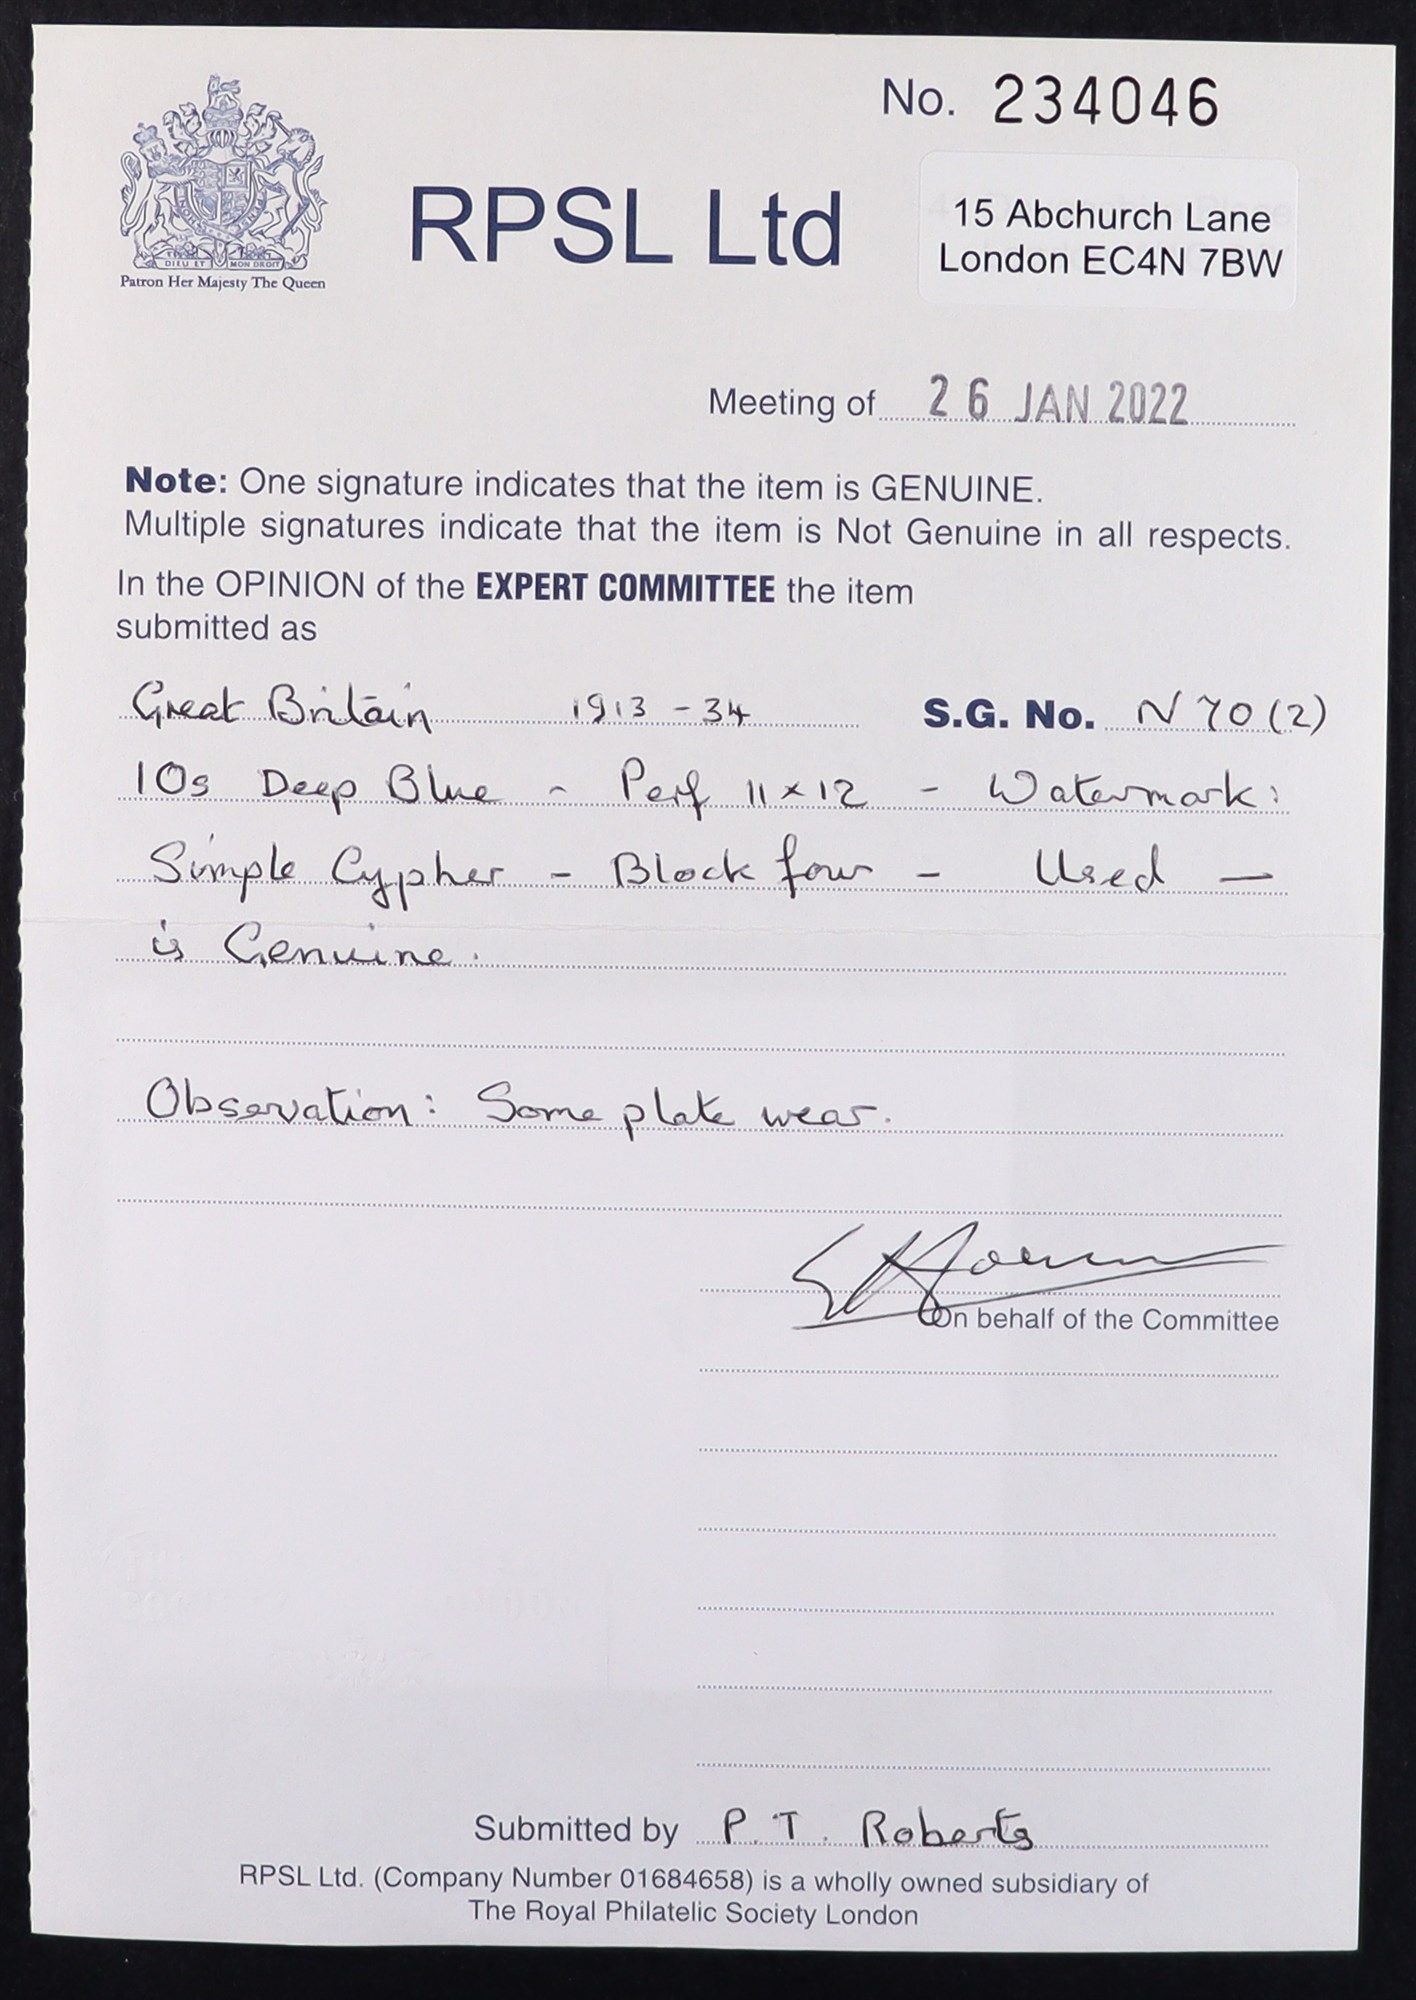 No. 234046
DIEU ET MON DROIT
Patron Her Majesty The Queen
RPSL Ltd
15 Abchurch Lane
London EC4N 7BW
Meeting of 26 JAN 2022
Note: One signature indicates that the item is GENUINE.
Multiple signatures indicate that the item is Not Genuine in all respects.
In the OPINION of the EXPERT COMMITTEE the item
submitted as
Great Britain 1913-34 S.G. No. N70(2)
10s Deep Blue - Perf 11x12 - Watermark:
Simple Cypher - Block four - Used -
is Genuine.
Observation: Some plate wear.
On behalf of the Committee
Submitted by P.T. Roberts
RPSL Ltd. (Company Number 01684658) is a wholly owned subsidiary of
The Royal Philatelic Society London